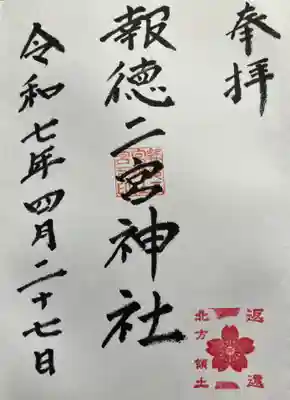 奉拝
報徳二宮神社
令和七年四月二十七日
返還
北方領土